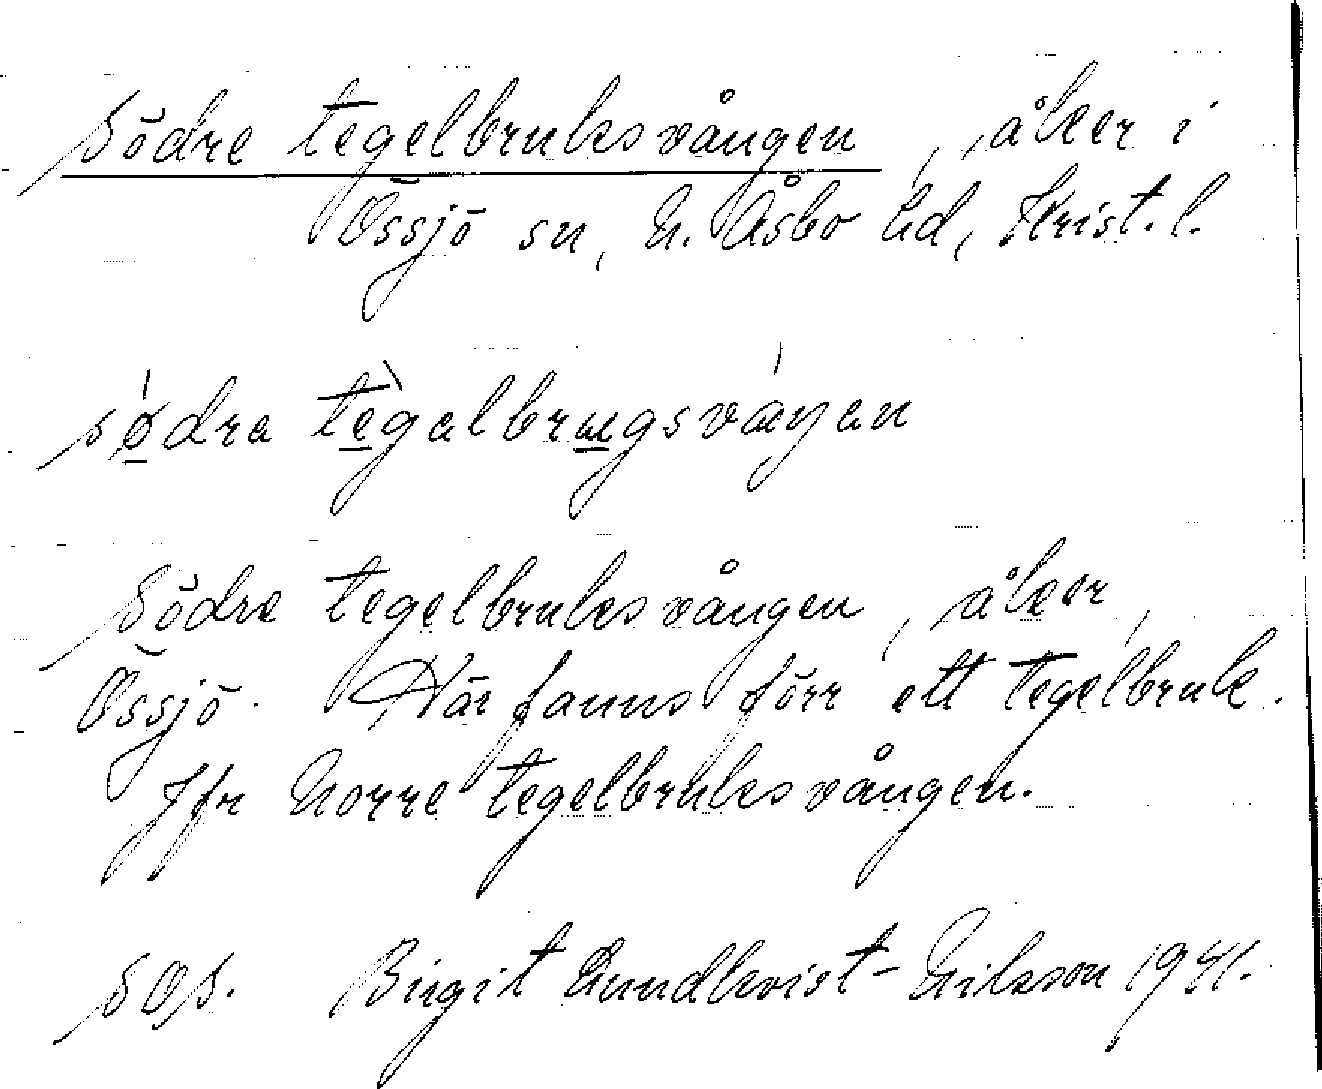 Södre tegelbruksvången, åker i
Össjö sn, N. Åsbo hd, Krist. l.
sødra tègalbrugsvaŋan
Södre tegelbruksvången, åker,
Össjö. Här fanns förr ett tegelbruk.
Jfr Norre tegelbruksvången.
SOS. Birgit Lundkvist-Nilsson 1941.